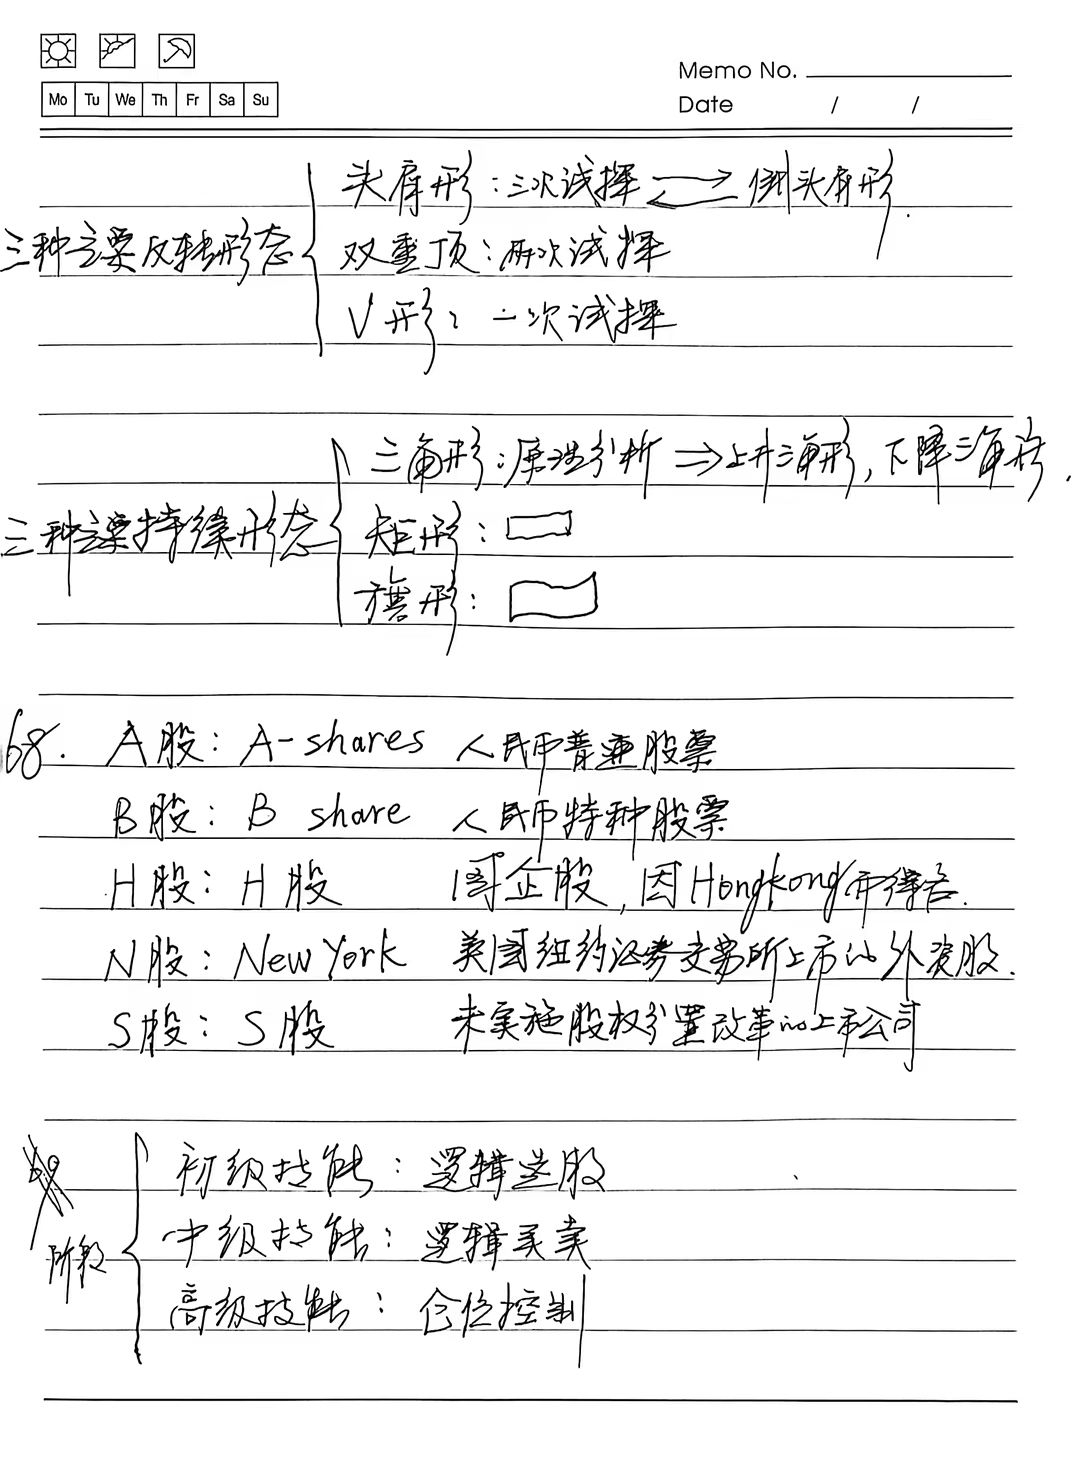 Memo No.
Mo Tu We Th Fr Sa Su
Date / /
头肩形：三次试探 ⇌ 倒头肩形.
三种主要反转形态
双重顶：两次试探
V形：一次试探
三角形：原理分析 ⇒ 上升三角形，下降三角形.
三种主要持续形态
矩形：
旗形：
68. A股：A-shares 人民币普通股票
B股：B share 人民币特种股票
H股：H股 国企股，因HongKong而得名.
N股：New York 美国纽约证券交易所上市的外资股.
S股：S股 未实施股权分置改革的上市公司
69
初级技能：逻辑选股
阶段
中级技能：逻辑买卖
高级技能：仓位控制